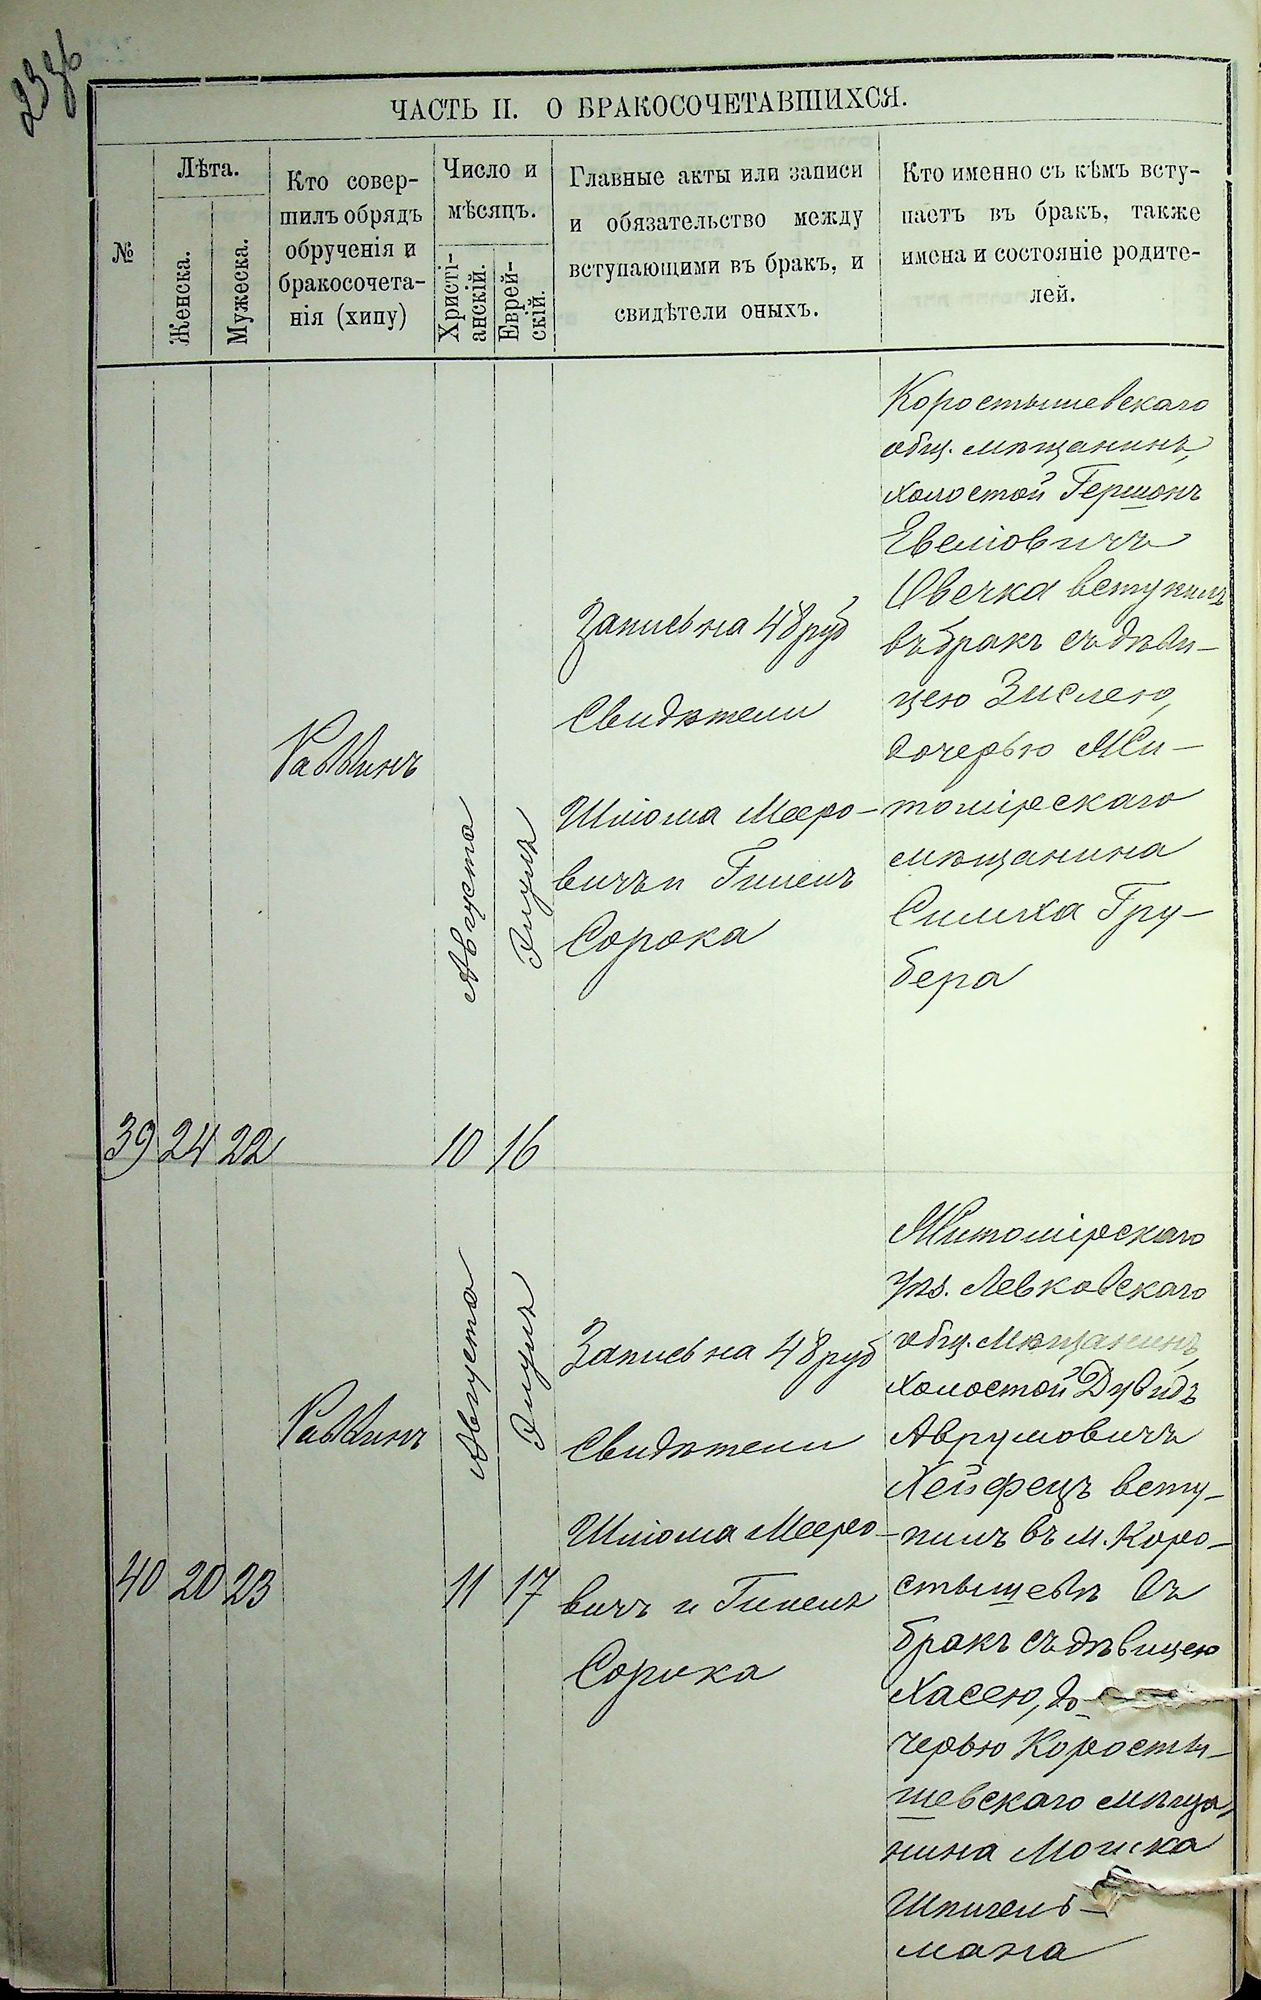 ЧАСТЬ II. О БРАКОСОЧЕТАВШИХСЯ.
№
Лѣта.
Женска.
Мужеска.
Кто совер-
шилъ обрядъ
обрученія и
бракосочета-
нія (хипу)
Число и
мѣсяцъ.
Христі-
анскій.
Еврей-
скій.
Главные акты или записи
и обязательство между
вступающими въ бракъ, и
свидѣтели оныхъ.
Кто именно съ кѣмъ всту-
паетъ въ бракъ, также
имена и состояніе родите-
лей.
39
24
22
Раввинъ
Августа
10
Элулъ
16
Запись на 48 руб
Свидѣтели
Шліома Мееро-
вичъ и Гилелъ
Сорока
Коростышевскаго
общ. мѣщанинъ,
холостой Гершонъ
Евеліовичъ
Овечка вступилъ
въ бракъ съ дѣви-
цею Зислею,
дочерью Жи-
томірскаго
мѣщанина
Симха Гру-
бера
40
20
23
Раввинъ
Августа
11
Элулъ
17
Запись на 48 руб
Свидѣтели
Шліома Мееро-
вичъ и Гилелъ
Сорока
Житомірскаго
уѣз. Левковскаго
общ. мѣщанинъ,
холостой Дувидъ
Аврумовичъ
Хейфецъ всту-
пилъ въ м. Коро-
стышевѣ въ
бракъ съ дѣвицею
Хасею, до-
черью Коросты-
шевскаго мѣща-
нина Мошка
Шпигель-
мана